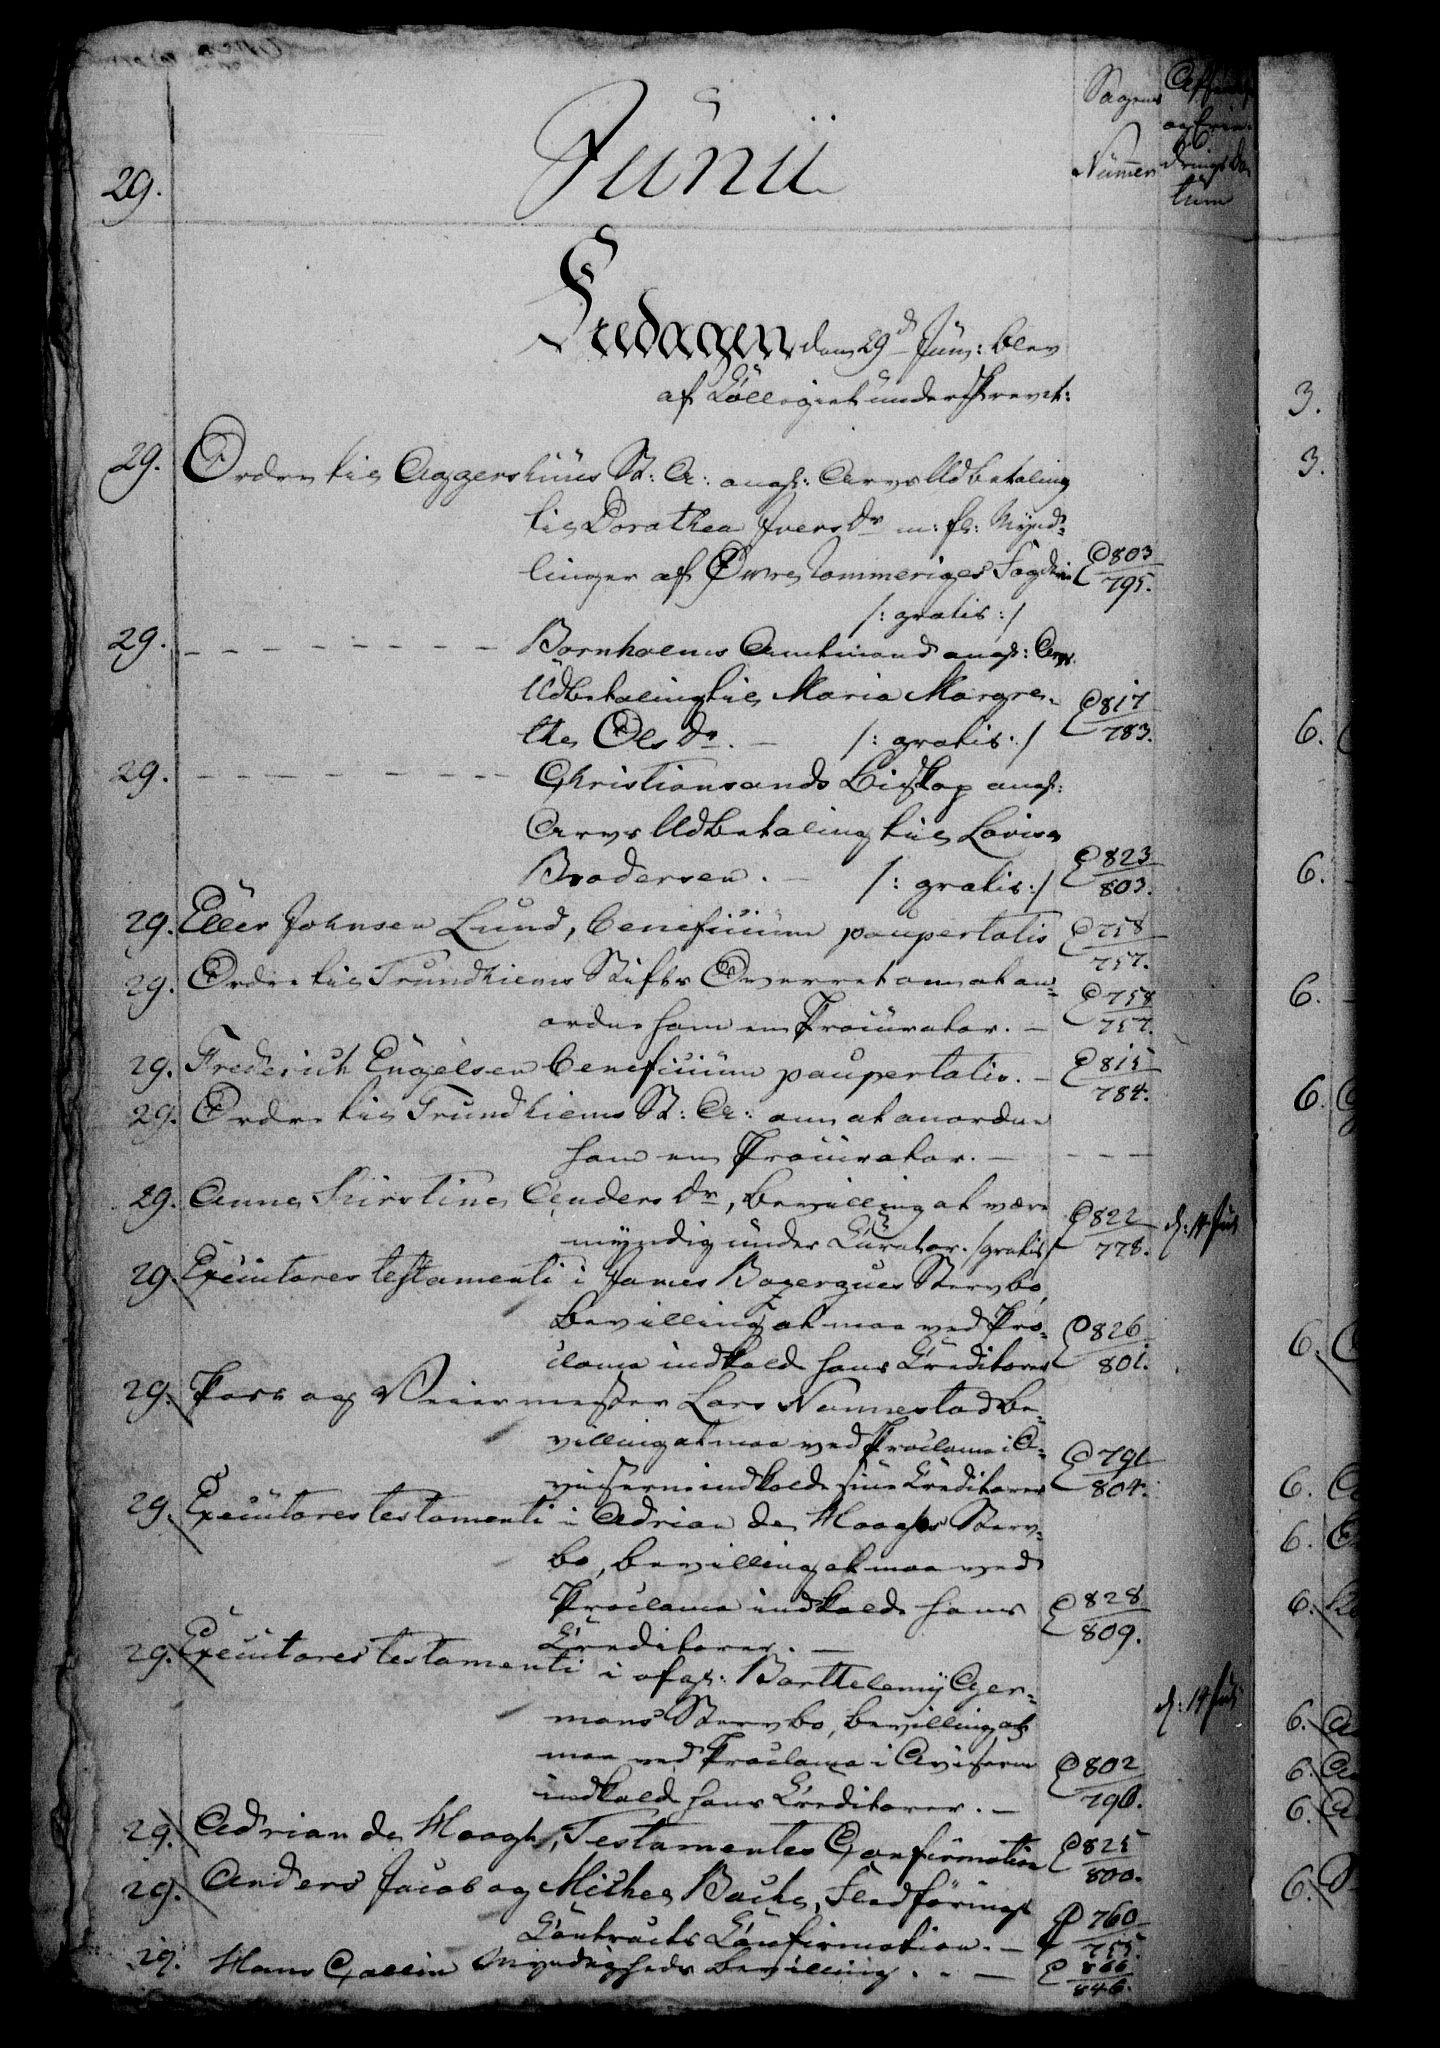 29.
Junii
Sagens
Nummer
tum
Fredagen den 29d Junii: blev
af Collegiet underskrevet:
29. Ordre til Aggershuus St: A: angl: Arvs Udbetaling
til Dorathea Iversdr m: fl: Mynd-
linger af Øvre Rommeriges Fogderie
/: gratis :/
C 803
795.
29. Bornholms Amtmand angl: Arvs
Udbetaling til Maria Margre-
the Olsdr. /: gratis :/
C 817
783.
29. Christiansands Biskop angl:
Arvs Udbetaling til Lovisa
Brodersen. /: gratis :/
C 823
803.
29. Eller Johnsen Lund, beneficium paupertatis
C 758
757.
29. Ordre til Trundhiems Stifts Overret om at an-
ordne ham en Procurator.
C 758
757.
29. Frederich Engelsen beneficium paupertatis.
C 815
784.
29. Ordre til Trundhiems St: A: om at anordne
ham en Procurator.
29. Anne Kirstine Andersdr, bevilling at være
myndig under Curator. /gratis/
C 822
778.
29. Executores testamenti i James Bozerques Sterfbo,
bevilling at maa ved Pro-
clama indkalde hans Creditorer
C 826
801.
29. Vare og Veiermester Lars Nannestad be-
villing at maa ved Proclama i A-
viserne indkalde sine Creditorer
C 791
804.
29. Executores testamenti i Adrian de Haaghs Sterv-
bo, bevilling at maa ved
Proclama indkalde hans
Creditorer.
C 828
809.
29. Executores testamenti i afgl: Barthelemÿ Ager-
mans Stervbo, bevilling at
maa ved Proclama i Aviserne
indkalde hans Creditorer.
C 802
790.
29. Adrian de Haagh, Testamentes Confirmation
C 825
800.
29. Anders Jacob og Mickel Bache, Fledførings
Contracts Confirmation.
C 760
755.
29. Hans Gallin Myndigheds bevilling.
C 866
846.
3.
3.
6.
6.
6.
6.
6.
6.
6.
6.
6.
6.
6.
6.